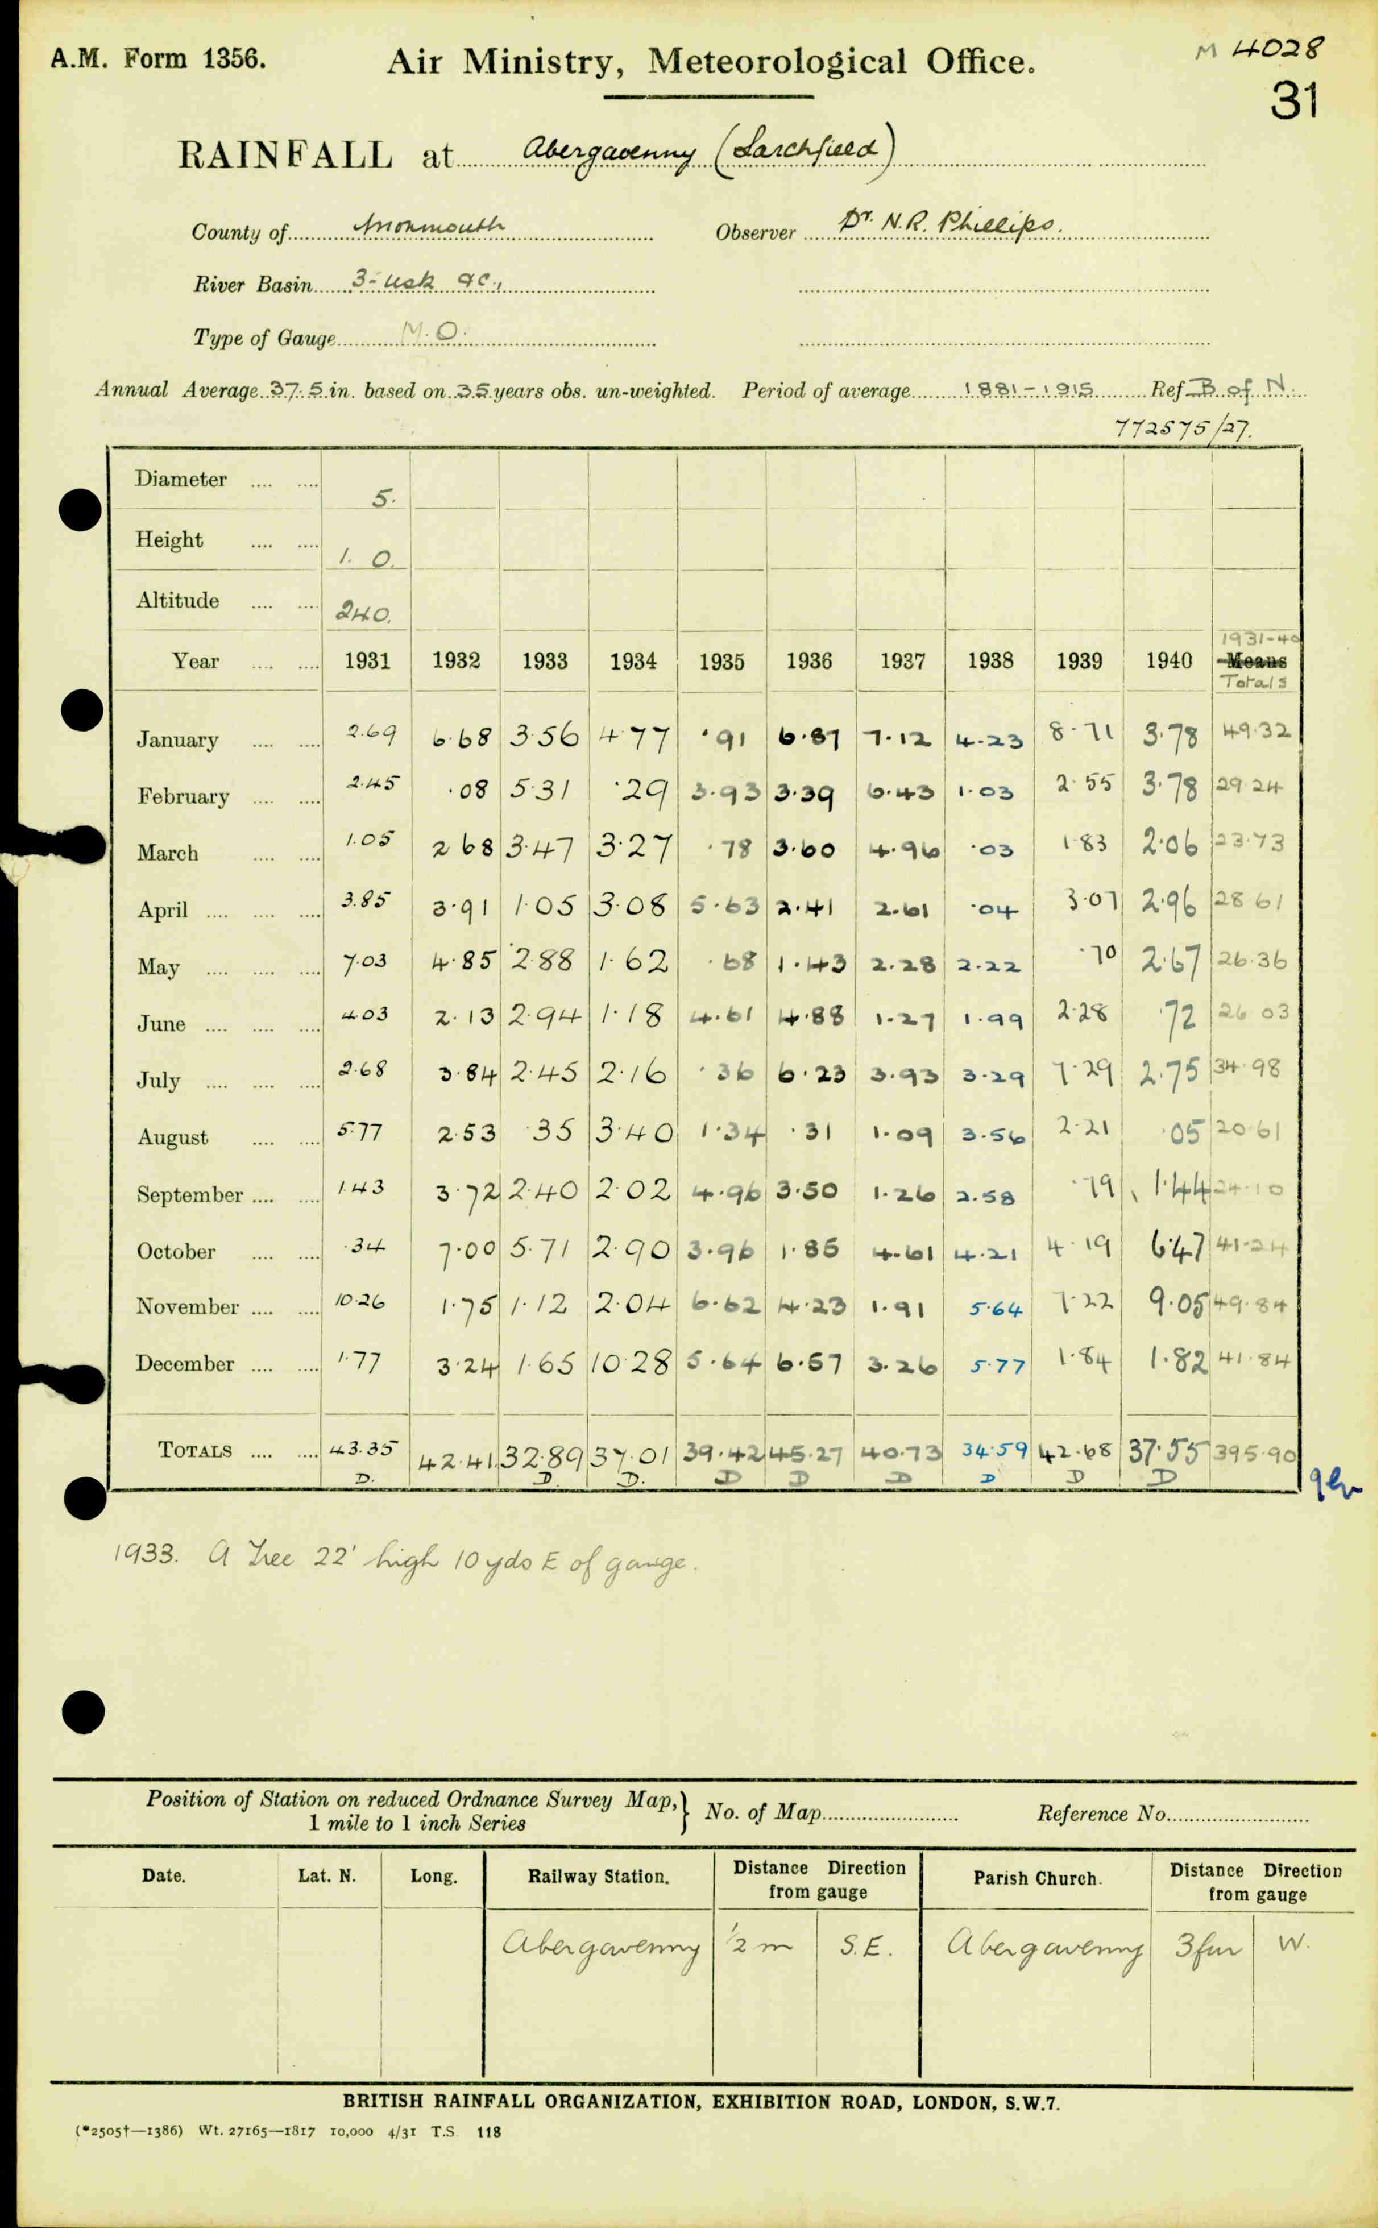 A.M. Form 1356.
Air Ministry, Meteorological Office.
M 4028
31
RAINFALL at Abergavenny (Larchfield)
County of Monmouth Observer Dr. N.R. Phillips.
River Basin 3-Usk &c.,
Type of Gauge M.O.
Annual Average 37.5 in. based on 35 years obs. un-weighted. Period of average 1881-1915 Ref B of N.
772575/27.
Diameter .... .... 5.
Height .... .... 1. 0.
Altitude .... .... 240.
1931-40
Year .... .... 1931 1932 1933 1934 1935 1936 1937 1938 1939 1940 Means
Totals
January .... .... 2.69 6.68 3.56 4.77 .91 6.87 7.12 4.23 8.71 3.78 49.32
February .... .... 2.45 .08 5.31 .29 3.93 3.39 6.43 1.03 2.55 3.78 29.24
March .... .... 1.05 2.68 3.47 3.27 .78 3.60 4.96 .03 1.83 2.06 23.73
April .... .... .... 3.85 3.91 1.05 3.08 5.63 2.41 2.61 .04 3.07 2.96 28.61
May .... .... .... 7.03 4.85 2.88 1.62 .68 1.43 2.28 2.22 .70 2.67 26.36
June .... .... .... 4.03 2.13 2.94 1.18 4.61 4.88 1.27 1.99 2.28 .72 26.03
July .... .... .... 2.68 3.84 2.45 2.16 .36 6.23 3.93 3.29 7.29 2.75 34.98
August .... .... 5.77 2.53 .35 3.40 1.34 .31 1.09 3.56 2.21 .05 20.61
September .... .... 1.43 3.72 2.40 2.02 4.96 3.50 1.26 2.58 .79 1.44 24.10
October .... .... .34 7.00 5.71 2.90 3.96 1.85 4.61 4.21 4.19 6.47 41.24
November .... .... 10.26 1.75 1.12 2.04 6.62 4.23 1.91 5.64 7.22 9.05 49.84
December .... .... 1.77 3.24 1.65 10.28 5.64 6.57 3.26 5.77 1.84 1.82 41.84
TOTALS .... .... 43.35 42.41 32.89 37.01 39.42 45.27 40.73 34.59 42.68 37.55 395.90
D. D. D. D D D D D D
1933. A Tree 22' high 10 yds E of gauge.
Position of Station on reduced Ordnance Survey Map,} No. of Map Reference No.
1 mile to 1 inch Series
Date. Lat. N. Long. Railway Station. Distance Direction from gauge Parish Church. Distance Direction from gauge
Abergavenny ½ m S.E. Abergavenny 3 fur W.
BRITISH RAINFALL ORGANIZATION, EXHIBITION ROAD, LONDON, S.W.7.
(*2505†—1386) Wt. 27165—1817 10,000 4/31 T.S. 118